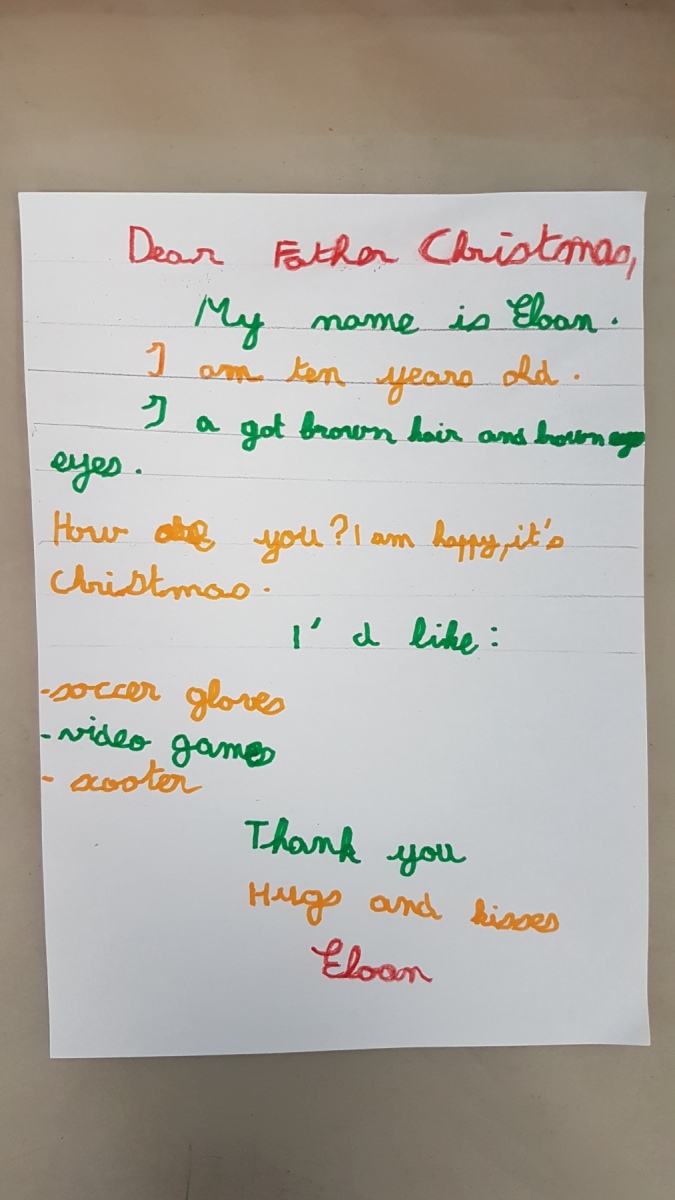 Dear Father Christmas,
My name is Eloan.
I am ten years old.
I a got brown hair and brown
eyes.
How you? I am happy, it's
Christmas.
I'd like:
-soccer gloves
-video games
- scooter
Thank you
Hugs and kisses
Eloan